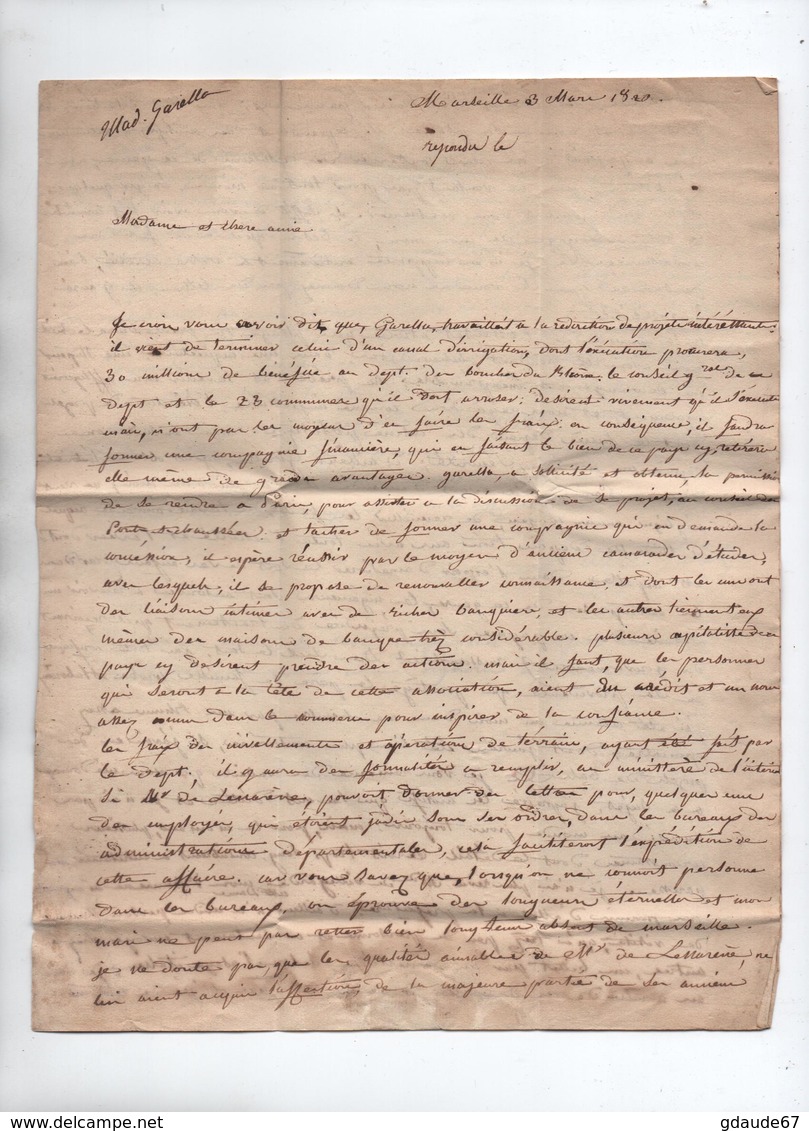 Mad. Garella
Marseille 3 Mars 1820.
repondu le
Madame et chere amie
Je crois vous avoir dit que, Garella, travaillait a la redirction de projets intéressants.
il vient de terminer celui d'un canal d'irrigation, dont l'exécution procurera,
30 millions de bénéfice au dept. des bouches du Rhone. le conseil gral de ce
dept et les 23 communes qu'il doit arroser; desirent vivement qu'il s'execute
mais, n'ont pas les moyens d'en faire les fraix. en conséquence il faudra
former une compagnie financière, qui en faisant le bien de ce pays cy, retirera
elle même de grands avantages. garella, a sollicité et obtenu la permission
de se rendre a Paris, pour assister a la discussion de ce projet, au conseil des
Ponts & chaussées. et tacher de former une compagnie qui en demande la
concéssion, il espère réussir par le moyen d'anciens camarades d'études,
avec lesquels, il se propose de renouveller connaissance, et dont les uns ont
des liaisons intimes avec de riches banquiers, et les autres tiennent eux
mêmes des maisons de banque très considérables. plusieurs capitalistes de ce
pays cy desirent prendre des actions. mais il faut, que les personnes
qui seront a la tête de cette association, aient du crédit et un nom
assez connu dans le commerce pour inspirer de la confiance.
les fraix de nivellements et opérations de terrains, ayant été faits par
le dept. il y aura des formalités a remplir, au ministère de l'intérieur
Si Mr de Lessarène, pouvait donner des lettres pour, quelques uns
des employés, qui étoient jadis sous ses ordres, dans les bureaux des
administrations départementales, cela faciliteroit l'expédition de
cette affaire. car vous savez que, lorsqu'on ne connoit personne
dans les bureaux, on éprouve des longueurs éternelles et mon
mari ne peut pas rester bien longtems absent de marseille.
je ne doute pas que les qualités aimables de Mr de Lessarène, ne
lui aient acquis l'affection, de la majeure partie de ses anciens
delcampe.net
gdaude67